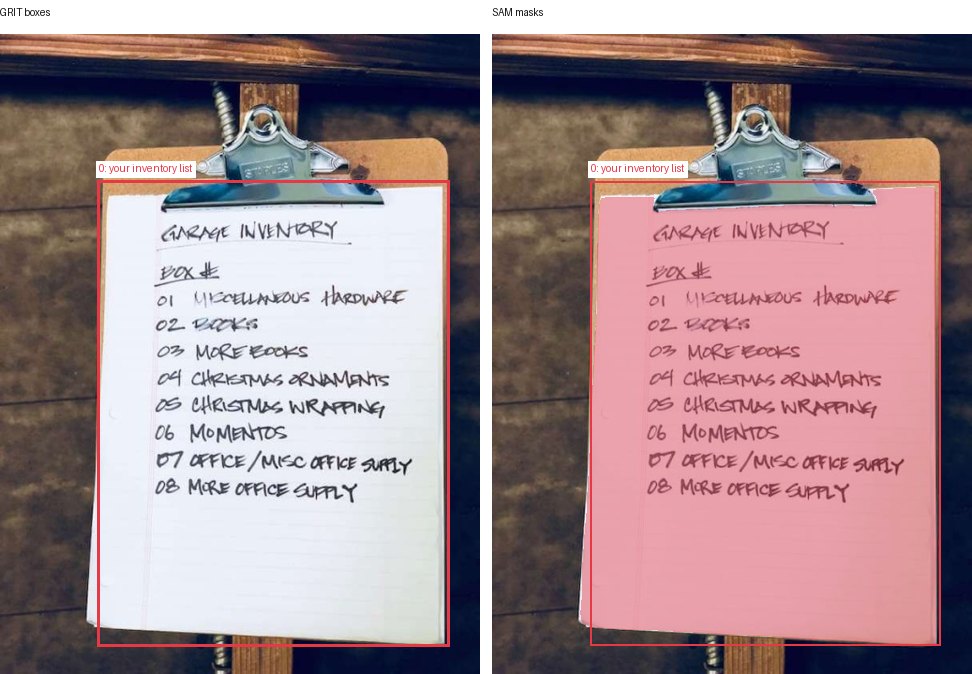 GRIT boxes
SAM masks
0: your inventory list
STAPLES
GARAGE INVENTORY
BOX #
01 MISCELLANEOUS HARDWARE
02 BOOKS
03 MORE BOOKS
04 CHRISTMAS ORNAMENTS
05 CHRISTMAS WRAPPING
06 MOMENTOS
07 OFFICE/MISC OFFICE SUPPLY
08 MORE OFFICE SUPPLY
0: your inventory list
STAPLES
GARAGE INVENTORY
BOX #
01 MISCELLANEOUS HARDWARE
02 BOOKS
03 MORE BOOKS
04 CHRISTMAS ORNAMENTS
05 CHRISTMAS WRAPPING
06 MOMENTOS
07 OFFICE/MISC OFFICE SUPPLY
08 MORE OFFICE SUPPLY